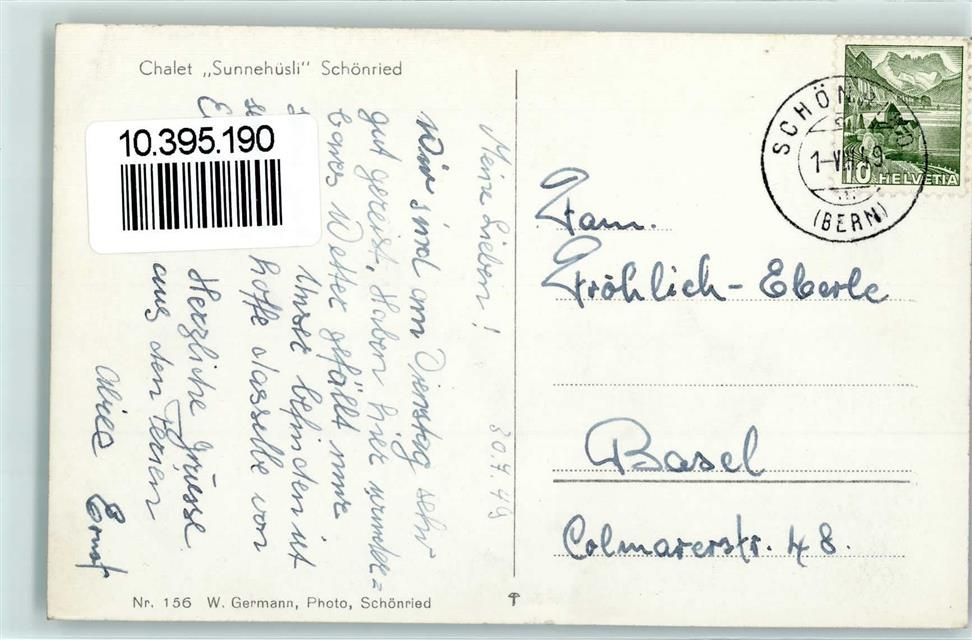 Chalet „Sunnehüsli" Schönried
10.395.190
Meine Lieben! 30.7.49
Wir sind am Dienstag sehr
gut gereist. Haben hier wunder=
bares Wetter gefällt mir
Unser befinden ist
hoffe dasselbe von
Herzliche Grüsse
aus den Ferien
Alice Ernst
Nr. 156 W. Germann, Photo, Schönried
SCHÖN
1-VIII 49
(BERN)
10 HELVETIA
Fam.
Fröhlich-Eberle
Basel
Colmarerstr. 48.